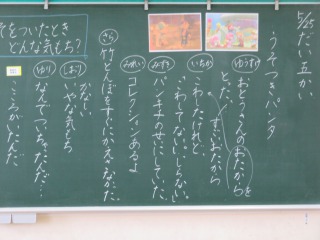 5/25 だい五かい
うそつきパンダ
ゆうすけ
おとうさんのおたからを
とった。
すごいおたから
いちか
こわしたけれど、
「こわしてない。しらない。」
みずき
パンチナのせいにしていた。
みれい
コレクションあるよ
さら
竹とんぼをすにかえさなかった。
うそをついたとき
どんな気もち?
しおり
かなしい
いやな気もち
ゆり
なんでついちゃたんだ…
こころがいたんだ